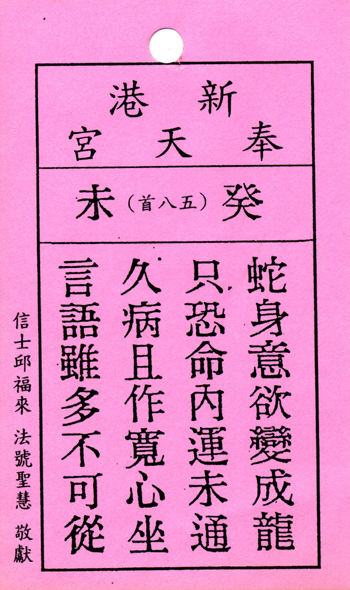 新港
奉天宮
癸（五八首）未
蛇身意欲變成龍
只恐命內運未通
久病且作寬心坐
言語雖多不可從
信士邱福來 法號聖慧 敬獻